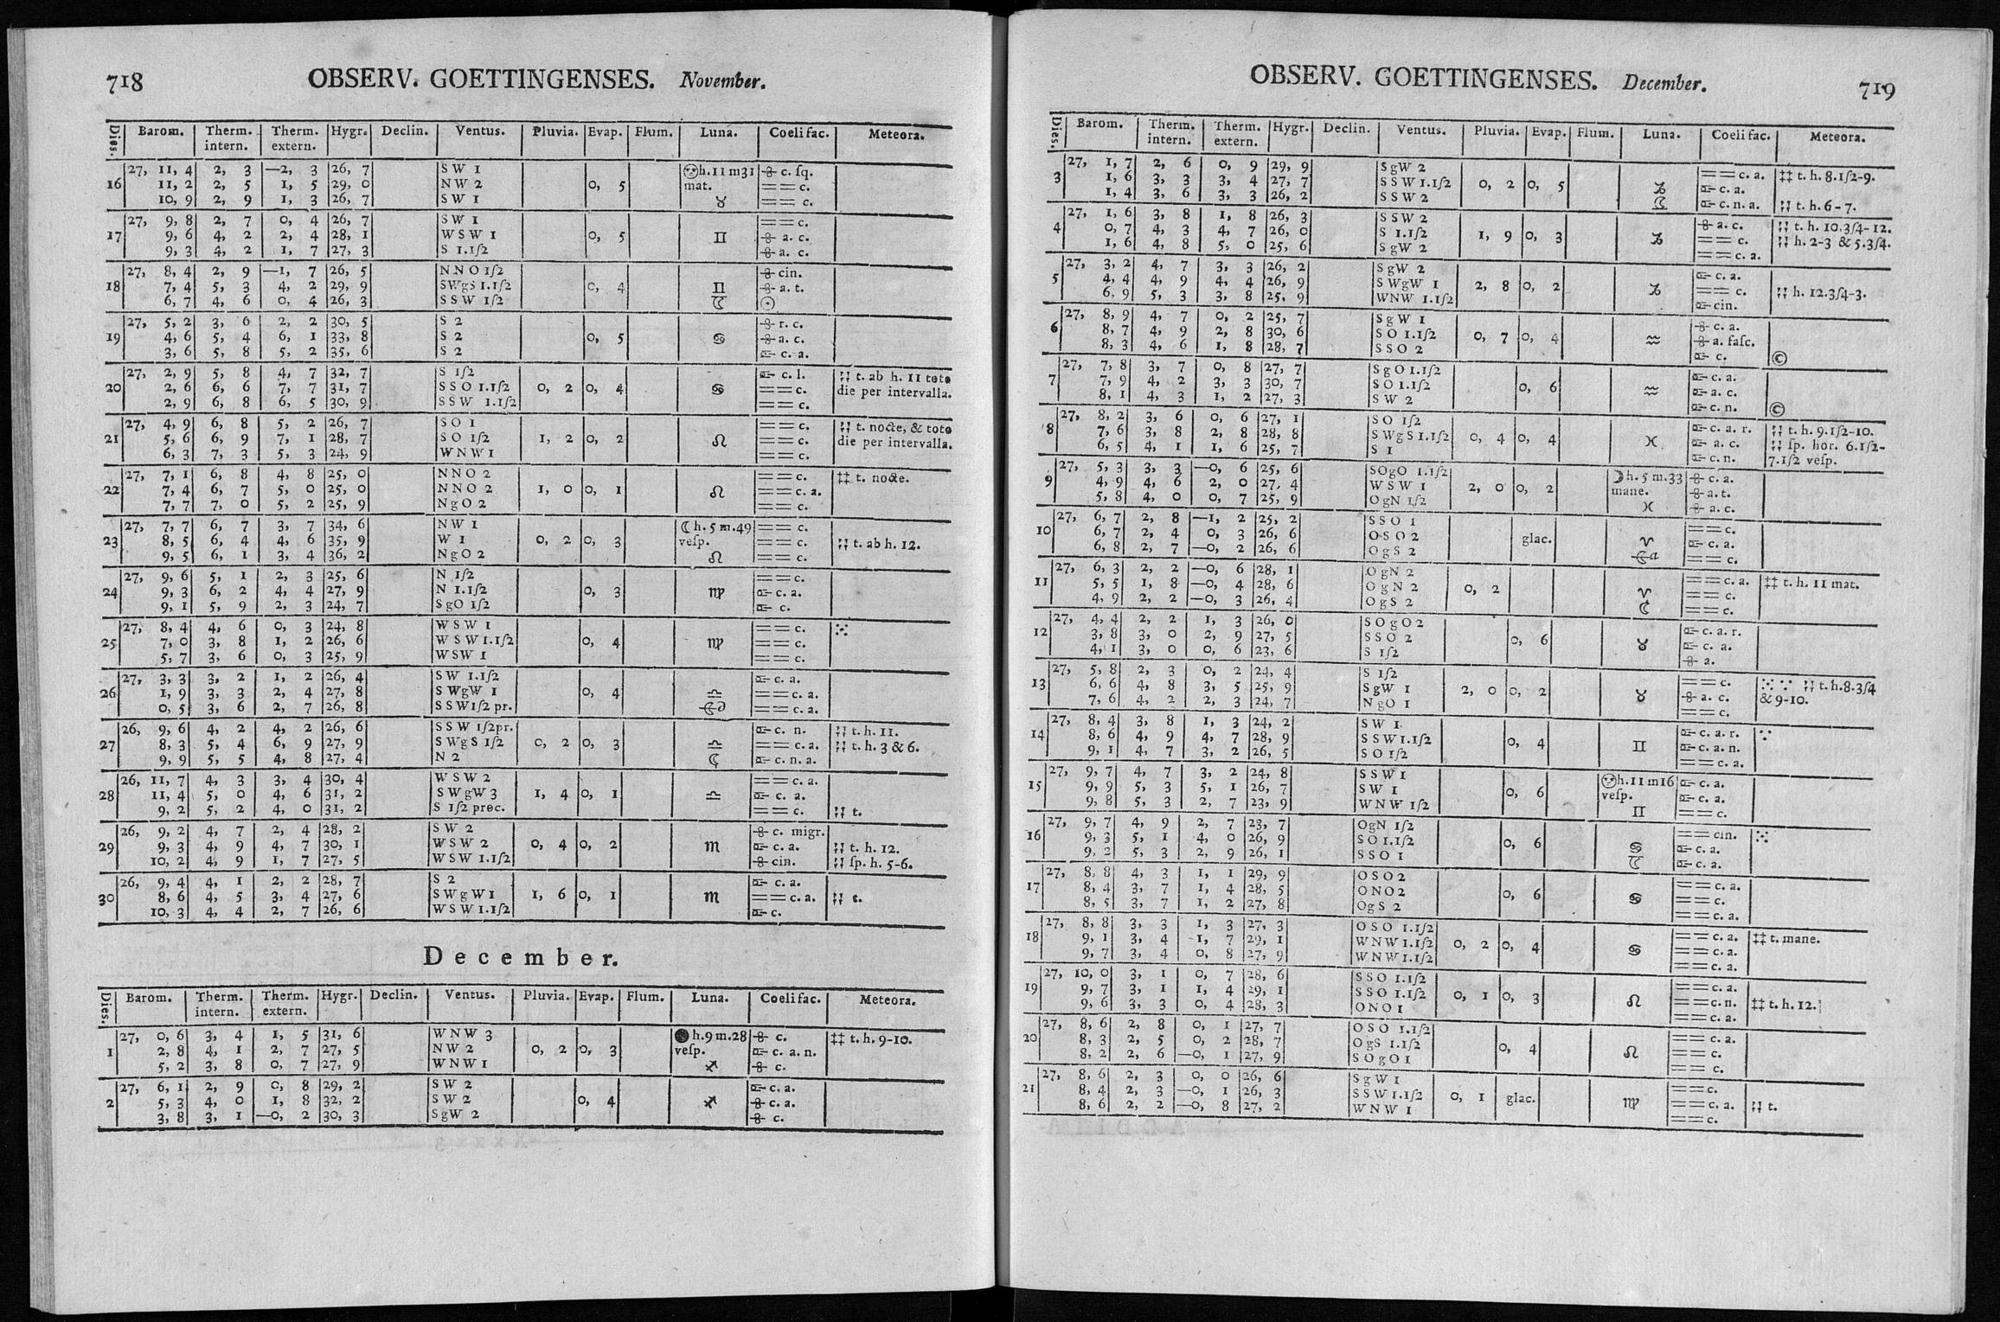 718 OBSERV. GOETTINGENSES. November.
Dies. Barom. Therm. intern. Therm. extern. Hygr. Declin. Ventus. Pluvia. Evap. Flum. Luna. Coeli fac. Meteora.
27, 11, 4 2, 3 —2, 3 26, 7 S W 1 h. 11 m 31 c. ſq.
16 11, 2 2, 5 1, 5 29, 0 N W 2 0, 5 mat. == c.
10, 9 2, 9 1, 3 26, 7 S W 1 ♉ == c.
27, 9, 8 2, 7 0, 4 26, 7 S W 1 == c.
17 9, 6 4, 2 2, 4 28, 1 W S W 1 0, 5 ♊ a. c.
9, 3 4, 2 1, 7 27, 3 S 1.1ſ2 a. c.
27, 8, 4 2, 9 —1, 7 26, 5 N N O 1ſ2 cin.
18 7, 4 5, 3 4, 2 29, 9 SWgS 1.1ſ2 0, 4 ♊ a. t.
6, 7 4, 6 0, 4 26, 3 S S W 1ſ2 ☉
27, 5, 2 3, 6 2, 2 30, 5 S 2 r. c.
19 4, 6 5, 4 6, 1 33, 8 S 2 0, 5 ♋ a. c.
3, 6 5, 8 5, 2 35, 6 S 2 c. a.
27, 2, 9 5, 8 4, 7 32, 7 S 1ſ2 c. l. t. ab h. 11 toto
20 2, 6 6, 6 7, 7 31, 7 S S O 1.1ſ2 0, 2 0, 4 ♋ == c. die per intervalla.
2, 9 6, 8 6, 5 30, 9 S S W 1.1ſ2 == c.
27, 4, 9 6, 8 5, 2 26, 7 S O 1 == c. t. nocte, & toto
21 5, 6 6, 9 7, 1 28, 7 S O 1ſ2 1, 2 0, 2 ♌ == c. die per intervalla.
6, 3 7, 3 5, 3 24, 9 W N W 1 == c.
27, 7, 1 6, 8 4, 8 25, 0 N N O 2 == c. ‡‡ t. nocte.
22 7, 4 6, 7 5, 0 25, 0 N N O 2 1, 0 0, 1 ♌ == c. a.
7, 7 7, 0 5, 2 25, 9 N g O 2 == c.
27, 7, 7 6, 7 3, 7 34, 6 N W 1 ☾ h. 5 m. 49 == c.
23 8, 5 6, 4 4, 6 35, 9 W 1 0, 2 0, 3 veſp. == c. t. ab h. 12.
9, 5 6, 1 3, 4 36, 2 N g O 2 ♌ == c.
27, 9, 6 5, 1 2, 3 25, 6 N 1ſ2 == c.
24 9, 3 6, 2 4, 4 27, 9 N 1.1ſ2 0, 3 ♍ c. a.
9, 1 5, 9 2, 3 24, 7 S g O 1ſ2 c.
27, 8, 4 4, 6 0, 3 24, 8 W S W 1 == c.
25 7, 0 3, 8 1, 2 26, 6 W S W 1.1ſ2 0, 4 ♍ == c.
5, 7 3, 6 0, 3 25, 9 W S W 1 == c.
27, 3, 3 3, 2 1, 2 26, 4 S W 1.1ſ2 c. a.
26 1, 9 3, 3 2, 4 27, 8 S W g W 1 0, 4 ♎ == c. a.
0, 5 3, 6 2, 7 26, 8 S S W 1ſ2 pr. == c. a.
26, 9, 6 4, 2 4, 2 26, 6 S S W 1ſ2 pr. c. n. t. h. 11.
27 8, 3 5, 4 6, 9 27, 9 S W g S 1ſ2 0, 2 0, 3 ♎ == c. a. t. h. 3 & 6.
9, 9 5, 5 4, 8 27, 4 N 2 c. n. a.
26, 11, 7 4, 3 3, 4 30, 4 W S W 2 == c. a.
28 11, 4 5, 0 4, 6 31, 2 S W g W 3 1, 4 0, 1 ♎ c. a.
9, 2 5, 2 4, 0 31, 2 S 1ſ2 prec. == c. t.
26, 9, 2 4, 7 2, 4 28, 2 S W 2 c. migr.
29 9, 3 4, 9 4, 7 30, 1 W S W 2 0, 4 0, 2 ♏ c. a. t. h. 12.
10, 2 4, 9 1, 7 27, 5 W S W 1.1ſ2 cin. ſp. h. 5-6.
26, 9, 4 4, 1 2, 2 28, 7 S 2 c. a.
30 8, 6 4, 5 3, 4 27, 6 S W g W 1 1, 6 0, 1 ♏ == c. a. t.
10, 3 4, 4 2, 7 26, 6 W S W 1.1ſ2 c.
December.
Dies. Barom. Therm. intern. Therm. extern. Hygr. Declin. Ventus. Pluvia. Evap. Flum. Luna. Coeli fac. Meteora.
27, 0, 6 3, 4 1, 5 31, 6 W N W 3 h. 9 m. 28 c. ‡‡ t. h. 9-10.
1 2, 8 4, 1 2, 7 27, 5 N W 2 0, 2 0, 3 veſp. c. a. n.
5, 2 3, 8 0, 7 27, 9 W N W 1 ♐ c.
27, 6, 1 2, 9 0, 8 29, 2 S W 2 c. a.
2 5, 3 4, 0 1, 8 32, 2 S W 2 0, 4 ♐ c. a.
3, 8 3, 1 —0, 2 30, 3 S g W 2 c.
OBSERV. GOETTINGENSES. December. 719
Dies. Barom. Therm. intern. Therm. extern. Hygr. Declin. Ventus. Pluvia. Evap. Flum. Luna. Coeli fac. Meteora.
27, 1, 7 2, 6 0, 9 29, 9 S g W 2 == c. a. ‡‡ t. h. 8.1ſ2-9.
3 1, 6 3, 3 3, 4 27, 7 S S W 1.1ſ2 0, 2 0, 5 ♑ c. a.
1, 4 3, 6 3, 3 26, 2 S S W 2 c. n. a. t. h. 6-7.
27, 1, 6 3, 8 1, 8 26, 3 S S W 2 a. c. t. h. 10.3ſ4-12.
4 0, 7 4, 3 4, 7 26, 0 S 1.1ſ2 1, 9 0, 3 ♑ == c. h. 2-3 & 5.3ſ4.
1, 6 4, 8 5, 0 25, 6 S g W 2 == c. a.
27, 3, 2 4, 7 3, 3 26, 2 S g W 2 c. a.
5 4, 4 4, 9 4, 4 26, 9 S W g W 1 2, 8 0, 2 ♑ == c. h. 12.3ſ4-3.
6, 9 5, 3 3, 8 25, 9 W N W 1.1ſ2 cin.
27, 8, 9 4, 7 0, 2 25, 7 S g W 1 c. a.
6 8, 7 4, 9 2, 8 30, 6 S O 1.1ſ2 0, 7 0, 4 ♒ a. faſc.
8, 3 4, 6 1, 8 28, 7 S S O 2 c. ©
27, 7, 8 3, 7 0, 8 27, 7 S g O 1.1ſ2 c. a.
7 7, 9 4, 2 3, 3 30, 7 S O 1.1ſ2 0, 6 ♒ a. c.
8, 1 4, 3 1, 2 27, 3 S W 2 c. n. ©
27, 8, 2 3, 6 0, 6 27, 1 S O 1ſ2 c. a. r. t. h. 9.1ſ2-10.
8 7, 6 3, 8 2, 8 28, 8 S W g S 1.1ſ2 0, 4 0, 4 ♓ a. c. ſp. hor. 6.1ſ2-
6, 5 4, 1 1, 6 25, 7 S 1 c. n. 7.1ſ2 veſp.
27, 5, 3 3, 3 —0, 6 25, 6 S O g O 1.1ſ2 ☽ h. 5 m. 33 c. a.
9 4, 9 4, 6 2, 0 27, 4 W S W 1 2, 0 0, 2 mane. a. t.
5, 8 4, 0 0, 7 25, 9 O g N 1ſ2 ♓ a. c.
27, 6, 7 2, 8 —1, 2 25, 2 S S O 1 == c.
10 6, 7 2, 4 0, 3 26, 6 O S O 2 glac. ♈ c. a.
6, 8 2, 7 —0, 2 26, 6 O g S 2 == c.
27, 6, 3 2, 2 —0, 6 28, 1 O g N 2 == c. a. ‡‡ t. h. 11 mat.
11 5, 5 1, 8 —0, 4 28, 6 O g N 2 0, 2 ♈ == c.
4, 9 2, 2 —0, 3 26, 4 O g S 2 == c.
27, 4, 4 2, 2 1, 3 26, 0 S O g O 2 c. a. r.
12 3, 8 3, 0 2, 9 27, 5 S S O 2 0, 6 ♉ c. a.
4, 1 3, 0 0, 6 23, 6 S 1ſ2 a.
27, 5, 8 2, 3 0, 2 24, 4 S 1ſ2 == c. t. h. 8.3ſ4
13 6, 6 4, 8 3, 5 25, 9 S g W 1 2, 0 0, 2 ♉ a. c. & 9-10.
7, 6 4, 2 2, 3 24, 7 N g O 1 == c.
27, 8, 4 3, 8 1, 3 24, 2 S W 1 c. a. r.
14 8, 6 4, 9 4, 7 28, 9 S S W 1.1ſ2 0, 4 ♊ c. a. n.
9, 1 4, 7 3, 2 26, 5 S O 1ſ2 == c. a.
27, 9, 7 4, 7 3, 2 24, 8 S S W 1 h. 11 m 16 c. a.
15 9, 9 5, 3 5, 1 26, 7 S W 1 0, 6 veſp. c. a.
9, 8 5, 3 2, 7 23, 9 W N W 1ſ2 ♊ == c.
27, 9, 7 4, 9 2, 7 23, 7 O g N 1ſ2 == cin.
16 9, 3 5, 1 4, 0 26, 9 S O 1.1ſ2 0, 6 ♋ c. a.
9, 2 5, 3 2, 9 26, 1 S S O 1 c. a.
27, 8, 8 4, 3 1, 1 29, 9 O S O 2 == c. a.
17 8, 4 3, 7 1, 4 28, 5 O N O 2 0, 6 ♋ == c.
8, 5 3, 7 1, 2 27, 8 O g S 2 == c. a.
27, 8, 8 3, 3 1, 3 27, 3 O S O 1.1ſ2 == c. a. ‡‡ t. mane.
18 9, 1 3, 4 1, 7 29, 1 W N W 1.1ſ2 0, 2 0, 4 ♋ == c. a.
9, 7 3, 4 0, 8 27, 9 W N W 1.1ſ2 == c. a.
27, 10, 0 3, 1 0, 7 28, 6 S S O 1.1ſ2 == c. a.
19 9, 7 3, 1 1, 4 29, 1 S S O 1.1ſ2 0, 1 0, 3 ♌ == c. n. ‡‡ t. h. 12.
9, 6 3, 3 0, 4 28, 3 O N O 1 == c. a.
27, 8, 6 2, 8 0, 1 27, 7 O S O 1.1ſ2 == c. a.
20 8, 3 2, 5 0, 2 28, 7 O g S 1.1ſ2 0, 4 ♌ == c.
8, 2 2, 6 —0, 1 27, 9 S O g O 1 == c.
27, 8, 6 2, 3 0, 0 26, 6 S g W 1 == c.
21 8, 4 2, 3 —0, 1 26, 3 S S W 1.1ſ2 0, 1 glac. ♍ == c. a. t.
8, 6 2, 2 —0, 8 27, 2 W N W 1 == c.